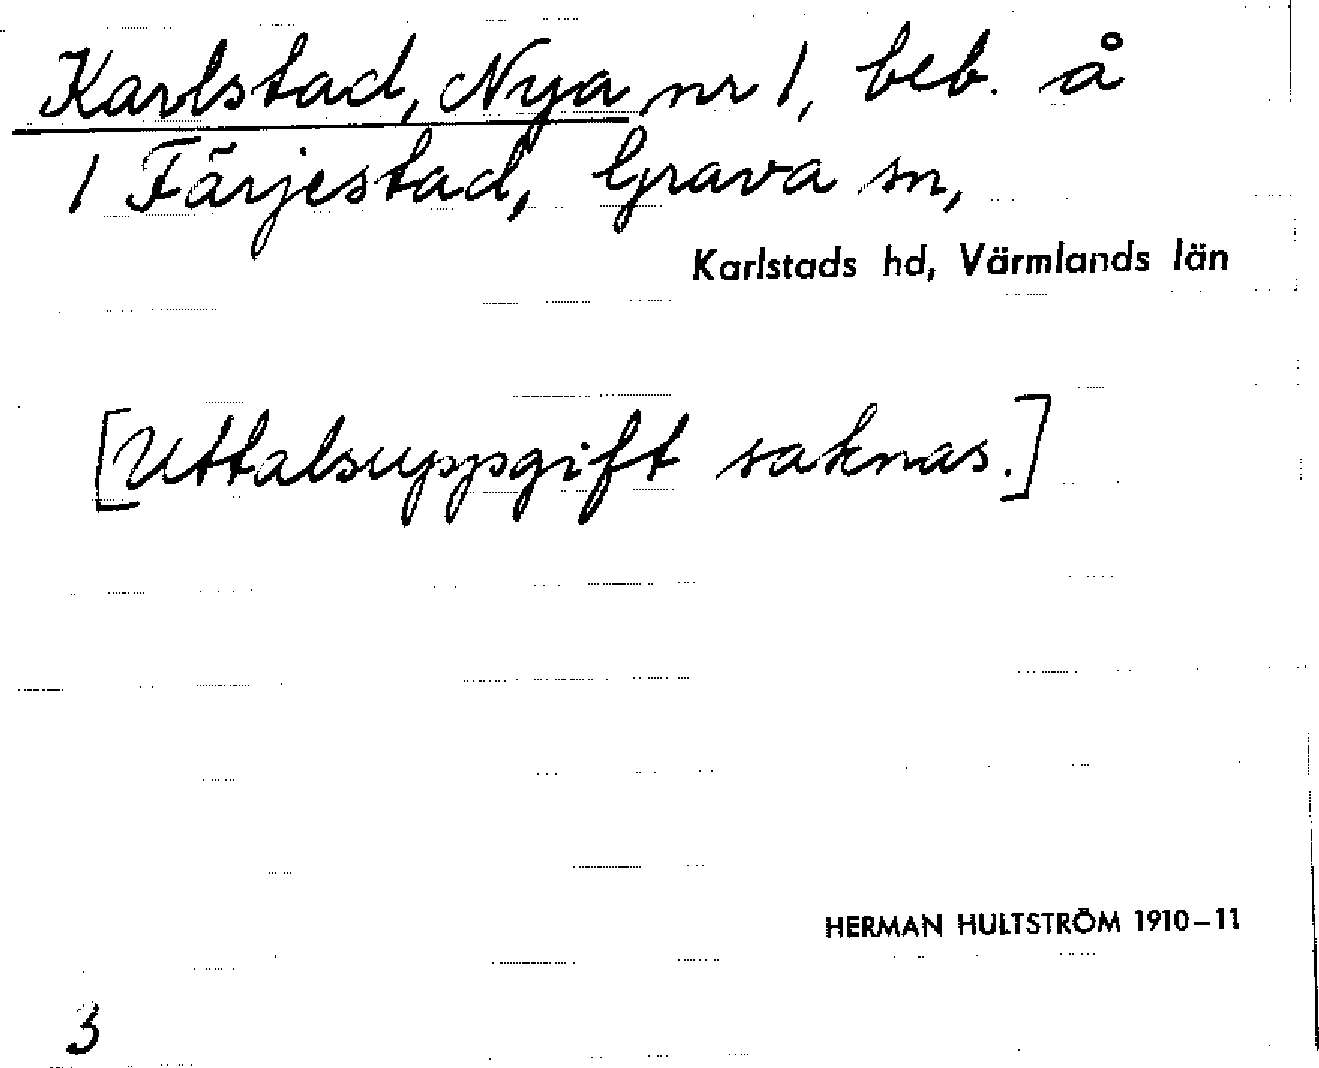 Karlstad, Nya nr 1, beb. å
1 Färjestad, Grava sn,
Karlstads hd, Värmlands län
[Uttalsuppgift saknas.]
HERMAN HULTSTRÖM 1910–11
3